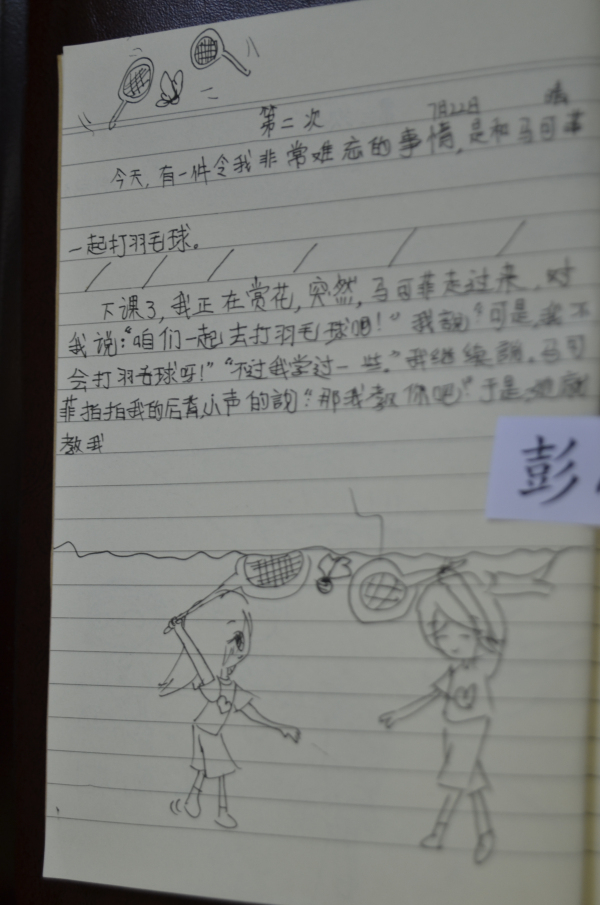 第二次 7月22日 晴
今天,有一件令我非常难忘的事情,是和马可菲
一起打羽毛球。
下课了,我正在赏花,突然,马可菲走过来,对
我说:“咱们一起去打羽毛球吧!”我說:“可是,我不
会打羽毛球呀!”“不过我学过一些。”我继续說。马可
菲拍拍我的后背,小声的說:“那我教你吧”于是,她就
教我
彭